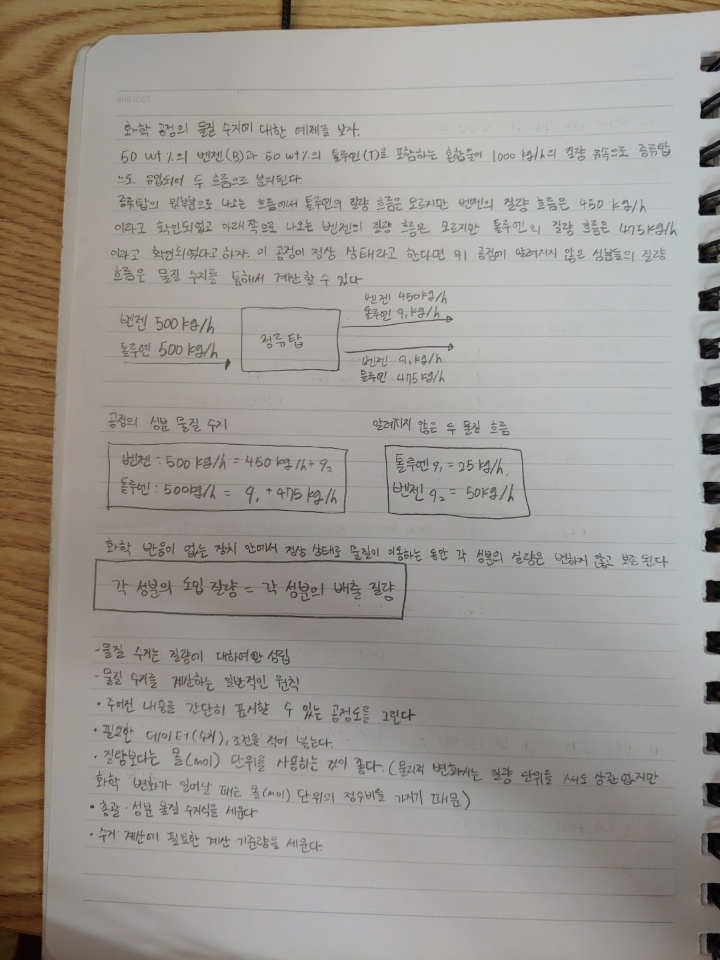 화학 공정의 물질 수지에 대한 예제를 보자.
50 wt%의 벤젠(B)과 50 wt%의 톨루엔(T)을 포함하는 혼합물이 1000 kg/h의 질량 유속으로 증류탑
으로 유입되어 두 흐름으로 분리된다.
증류탑의 윗부분으로 나오는 흐름에서 톨루엔의 질량 흐름은 모르지만 벤젠의 질량 흐름은 450 kg/h
이라고 확인되었고 아래쪽으로 나오는 벤젠의 질량 흐름은 모르지만 톨루엔의 질량 흐름은 475kg/h
이라고 확인되었다고 하자. 이 공정이 정상 상태라고 한다면 위 공정에 알려지지 않은 성분들의 질량
흐름은 물질 수지를 통해서 계산할 수 있다
벤젠 500kg/h
톨루엔 500 kg/h
정류탑
벤젠 450kg/h
톨루엔 q₁ kg/h
벤젠 q₁ kg/h
톨루엔 475kg/h
공정의 성분 물질 수지
벤젠 : 500 kg/h = 450 kg/h + q₂
톨루엔 : 500kg/h = q₁ + 475 kg/h
알려지지 않은 두 물질 흐름
톨루엔 q₁ = 25 kg/h
벤젠 q₂ = 50kg/h
화학 반응이 없는 장치 안에서 정상 상태로 물질이 이동하는 동안 각 성분의 질량은 변하지 않고 보존된다
각 성분의 도입 질량 = 각 성분의 배출 질량
-물질 수지는 질량에 대하여만 성립
-물질 수지를 계산하는 일반적인 원칙
• 주어진 내용을 간단히 표시할 수 있는 공정도를 그린다
• 필요한 데이터(수치), 조건을 적어 놓는다.
• 질량보다는 몰(mol) 단위를 사용하는 것이 좋다. (물리적 변화에서는 질량 단위를 써도 상관없지만
화학 변화가 일어날 때는 몰(mol) 단위의 정수비를 가지기 때문)
• 총괄·성분 물질 수지식을 세운다
• 수지 계산에 필요한 계산 기준량을 세운다.